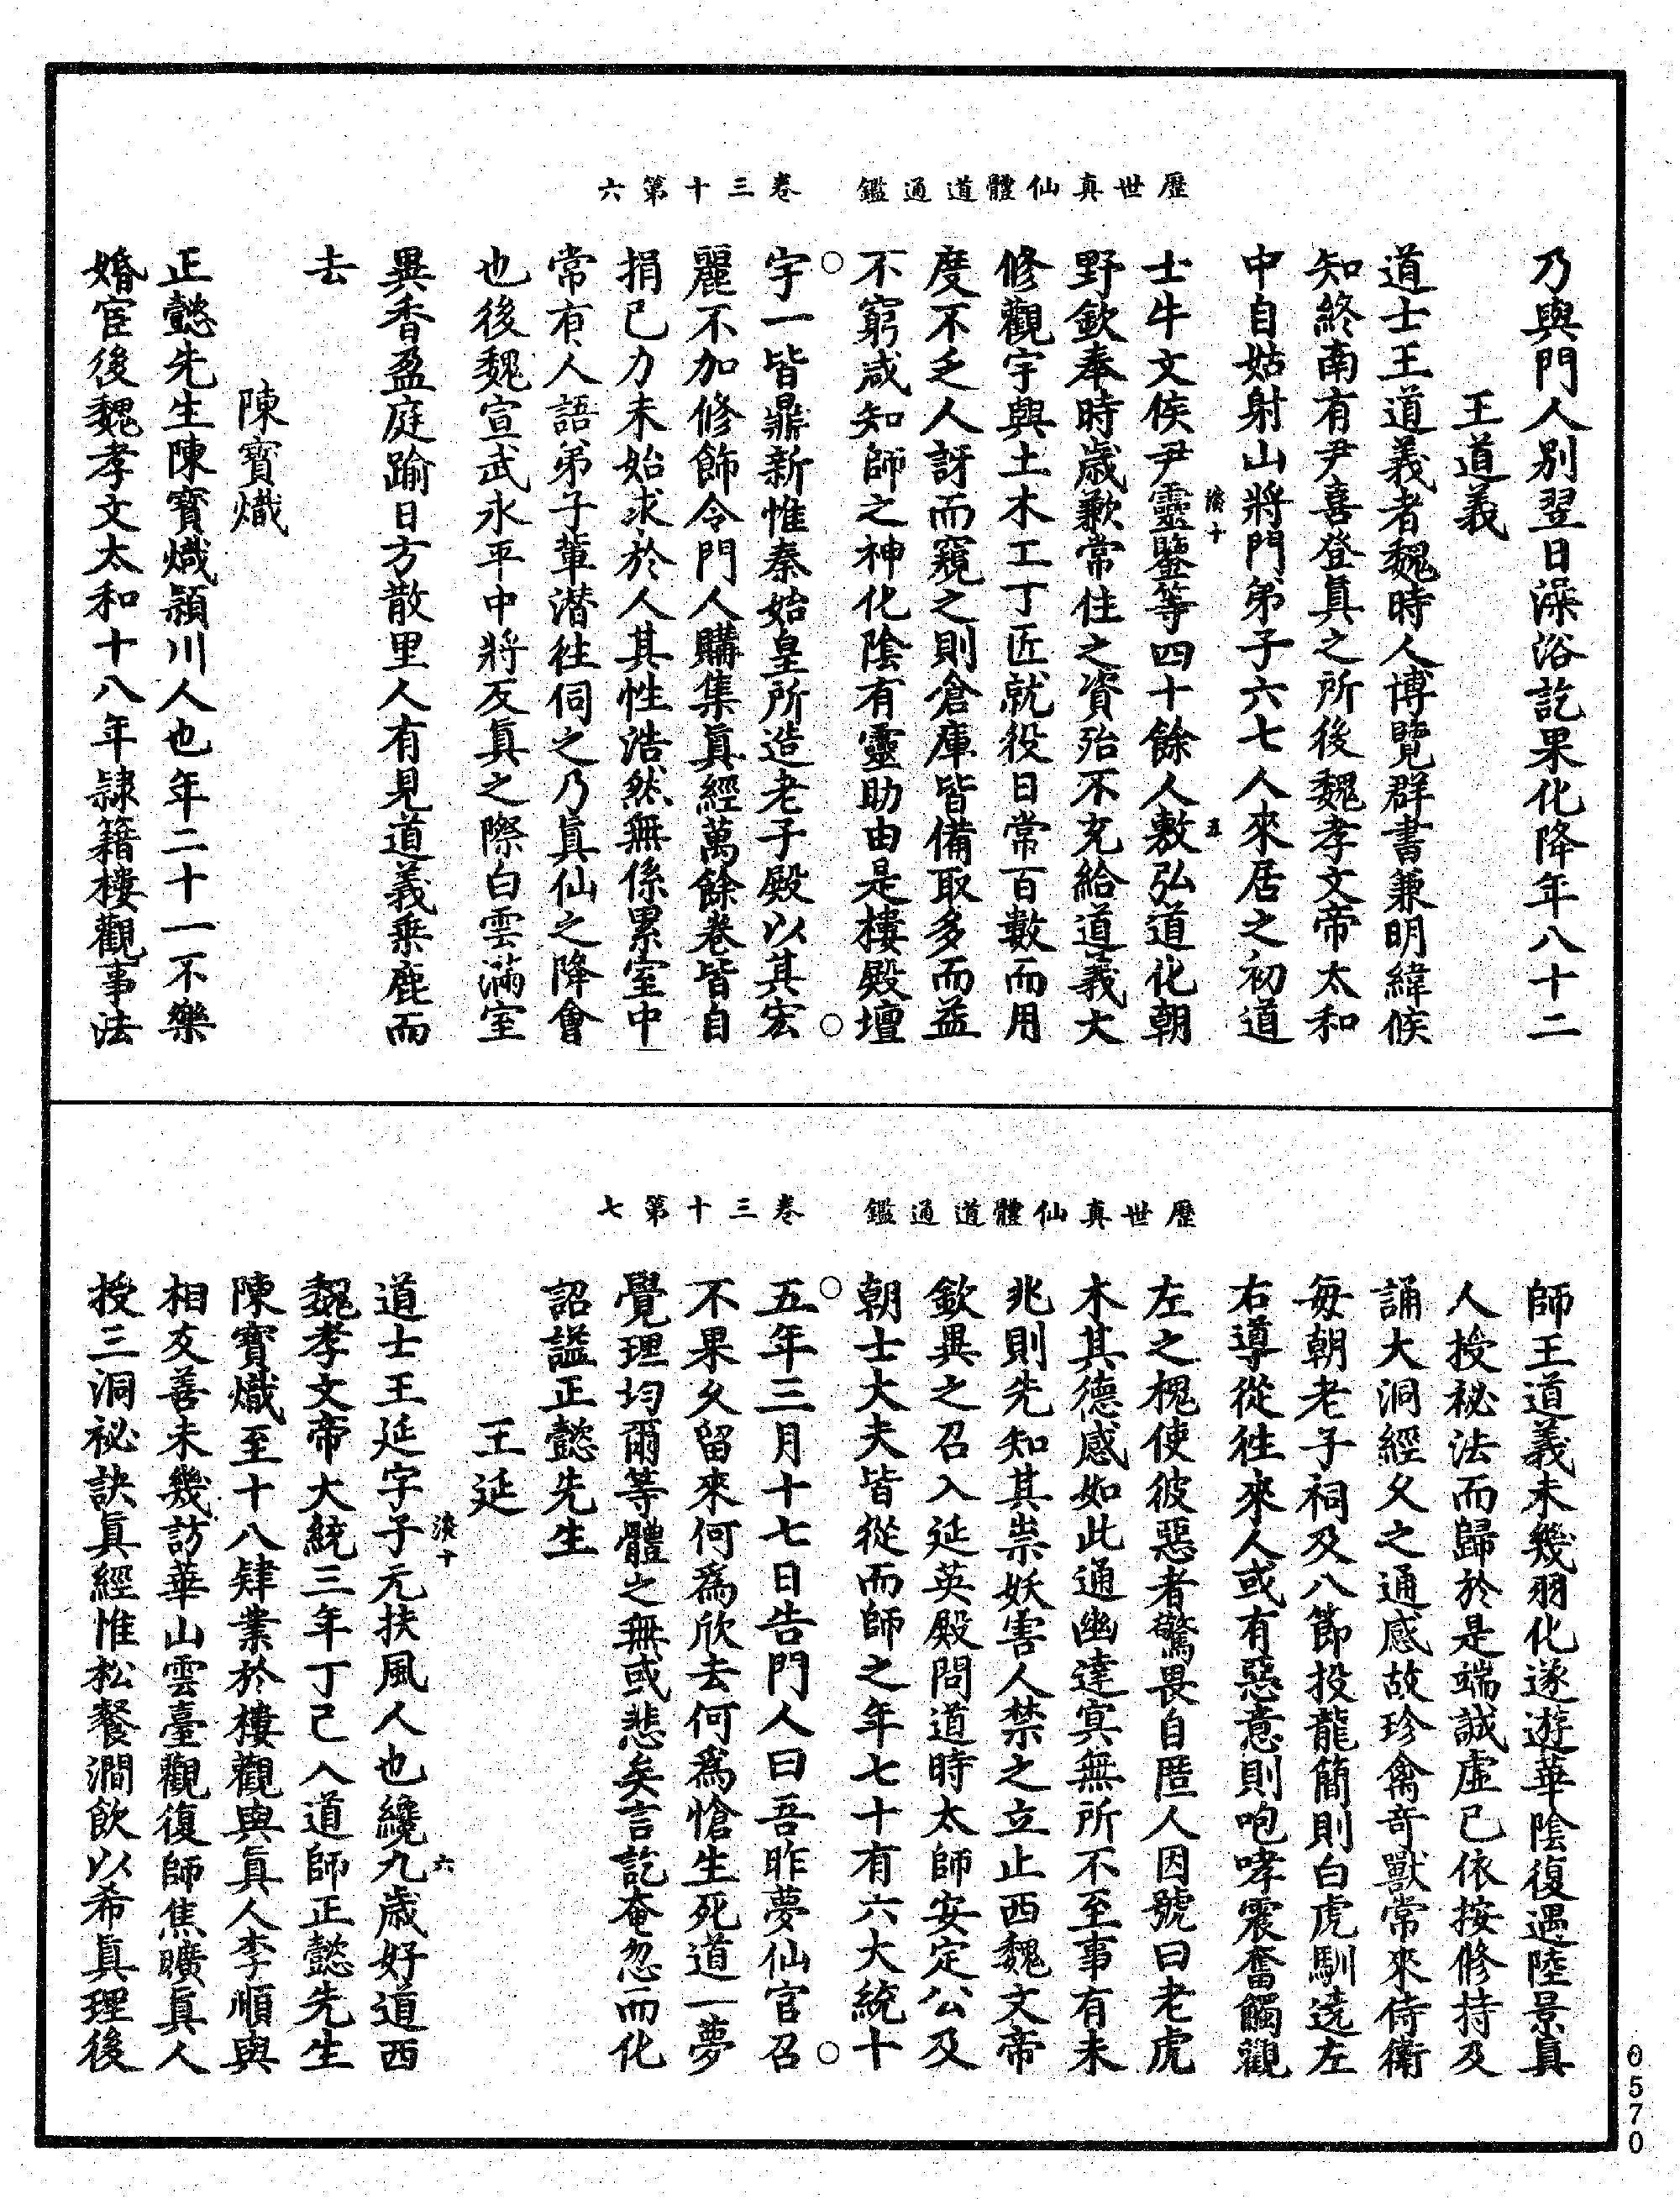 歷世真仙體道通鑑　卷三十第六
乃與門人別翌日澡浴訖果化降年八十二
王道義
道士王道義者魏時人博覽群書兼明緯候
知終南有尹喜登真之所後魏孝文帝太和
中自姑射山將門弟子六七人來居之初道
士牛文侯尹靈鑒等四十餘人敷弘道化朝
野欽奉時歲歉常住之資殆不充給道義大
修觀宇興土木工丁匠就役日常百數而用
度不乏人訝而窺之則倉庫皆備取多而益
不窮咸知師之神化陰有靈助由是樓殿壇
宇一皆鼎新惟秦始皇所造老子殿以其宏
麗不加修飾令門人購集真經萬餘卷皆自
捐己力未始求於人其性浩然無係累室中
常有人語弟子輩潛往伺之乃真仙之降會
也後魏宣武永平中將反真之際白雲滿室
異香盈庭踰日方散里人有見道義乘鹿而
去
陳寶熾
正懿先生陳寶熾潁川人也年二十一不樂
婚宦後魏孝文太和十八年隸籍樓觀事法
歷世真仙體道通鑑　卷三十第七
師王道義未幾羽化遂遊華陰復遇陸景真
人授祕法而歸於是端誠虛己依按修持及
誦大洞經久之通感故珍禽奇獸常來侍衛
每朝老子祠及八節投龍簡則白虎馴遶左
右導從往來人或有惡意則咆哮震奮觸觀
左之槐使彼惡者驚畏自匿人因號曰老虎
木其德感如此通幽達冥無所不至事有未
兆則先知其祟妖害人禁之立止西魏文帝
欽異之召入延英殿問道時太師安定公及
朝士大夫皆從而師之年七十有六大統十
五年三月十七日告門人曰吾昨夢仙官召
不果久留來何為欣去何為愴生死道一夢
覺理均爾等體之無或悲矣言訖奄忽而化
詔謚正懿先生
王延
道士王延字子元扶風人也纔九歲好道西
魏孝文帝大統三年丁己入道師正懿先生
陳寶熾至十八肄業於樓觀與真人李順興
相友善未幾訪華山雲臺觀復師焦曠真人
授三洞祕訣真經惟松餐澗飲以希真理後
0570